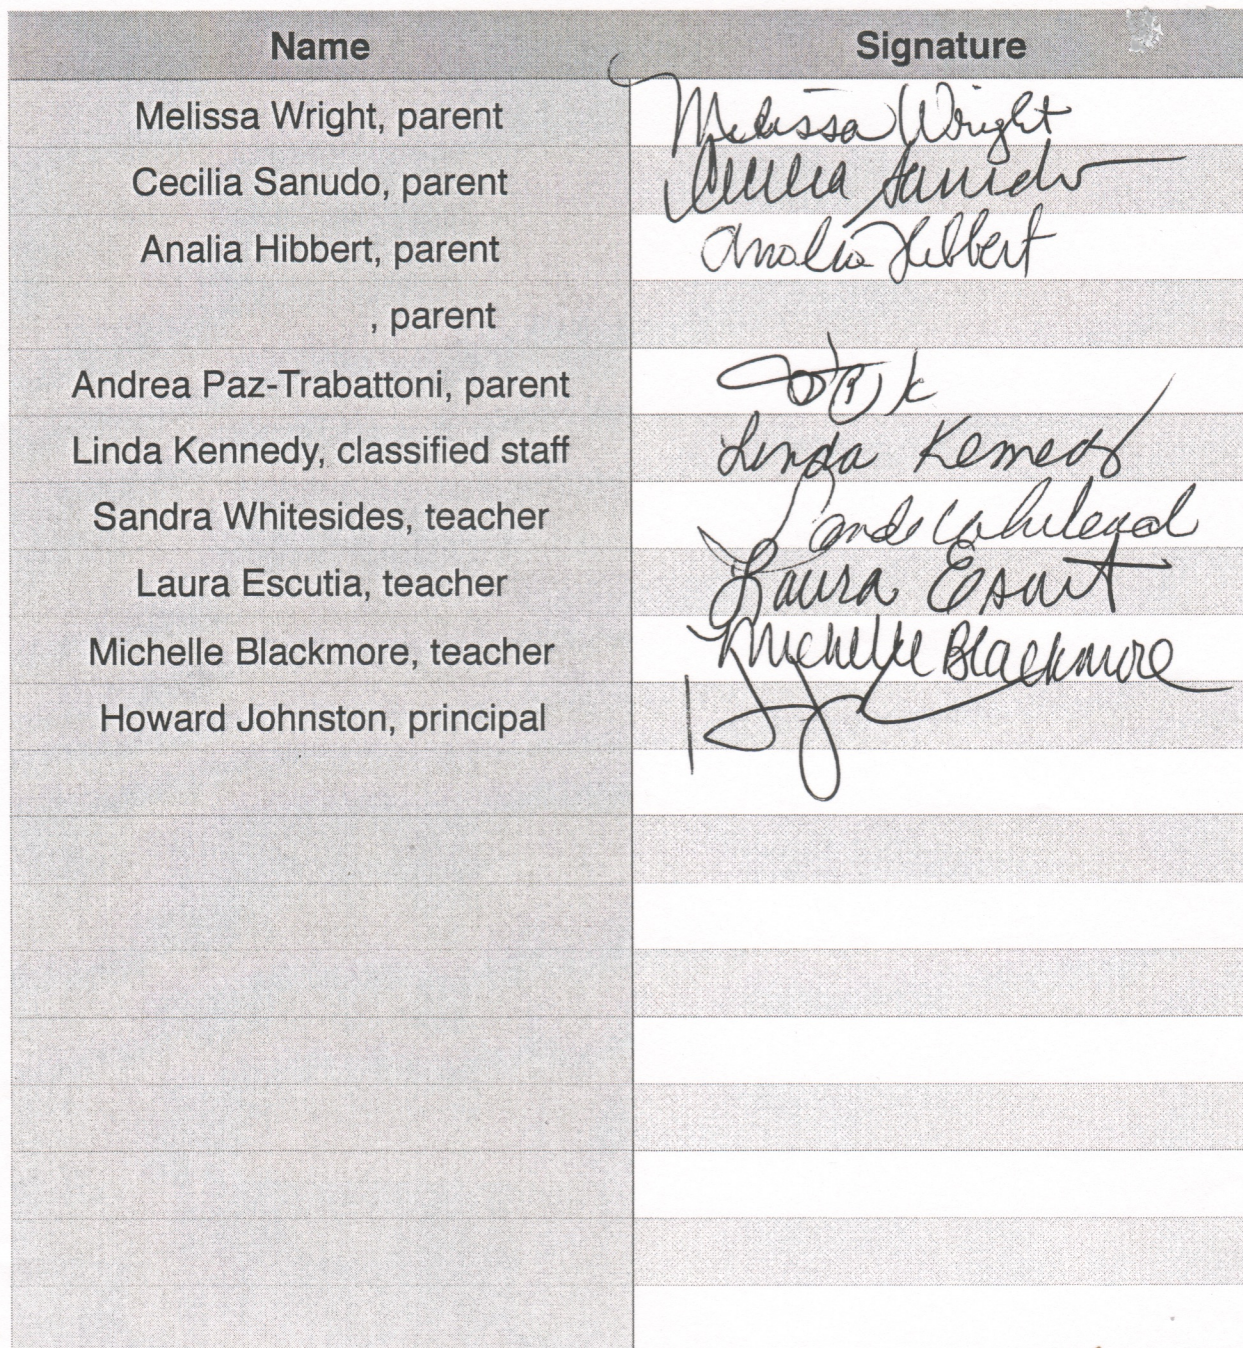 Name Signature
Melissa Wright, parent Melissa Wright
Cecilia Sanudo, parent Cecilia Sanudo
Analia Hibbert, parent Analia Hibbert
, parent
Andrea Paz-Trabattoni, parent
Linda Kennedy, classified staff Linda Kennedy
Sandra Whitesides, teacher
Laura Escutia, teacher Laura
Michelle Blackmore, teacher Michelle Blackmore
Howard Johnston, principal